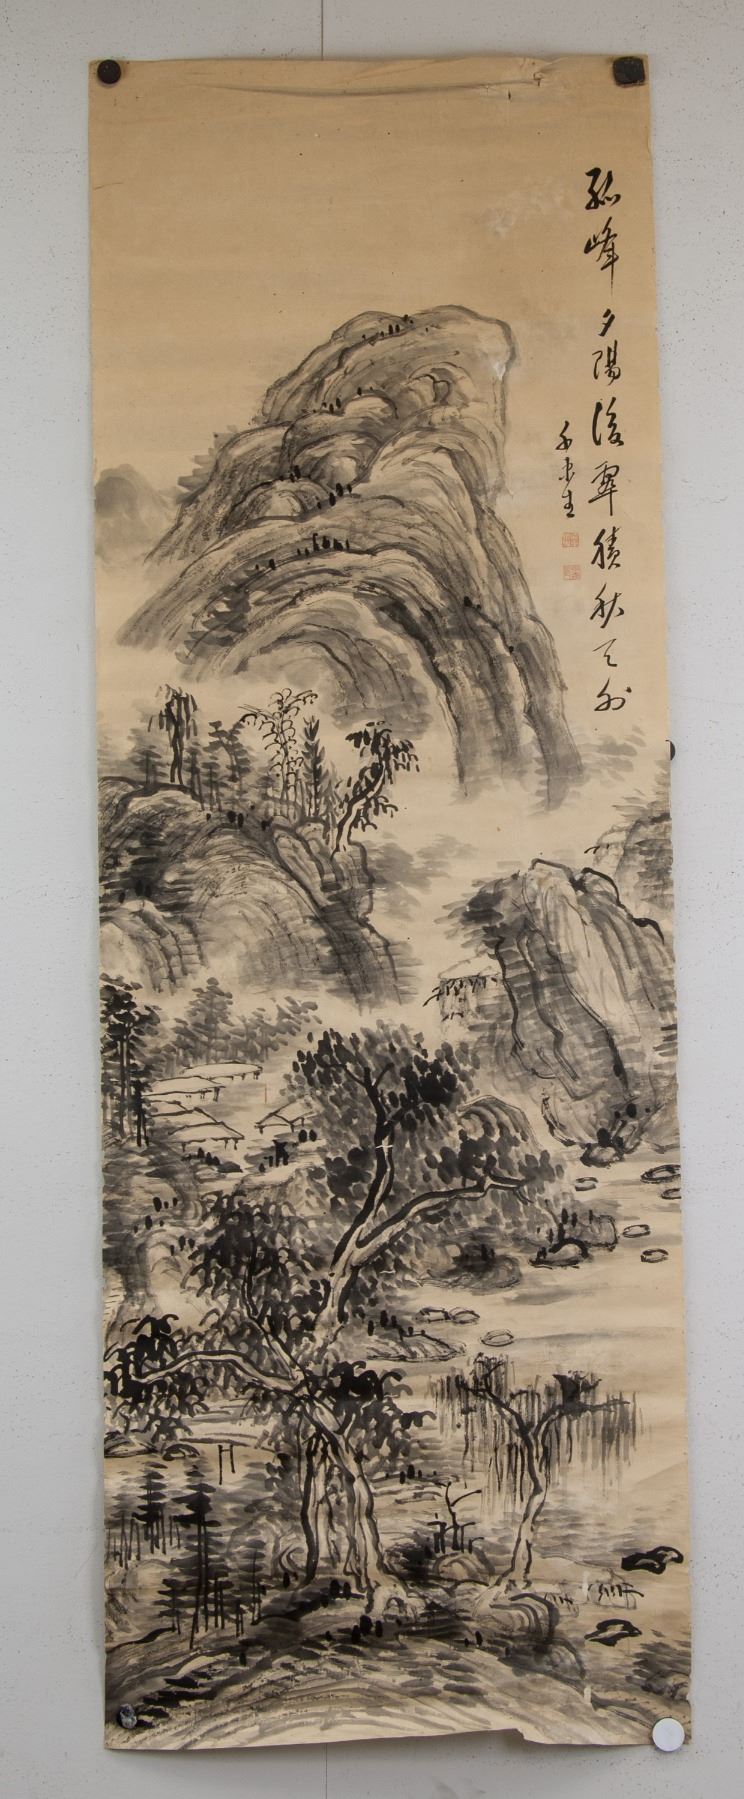 孤峰夕陽後翠積秋天外